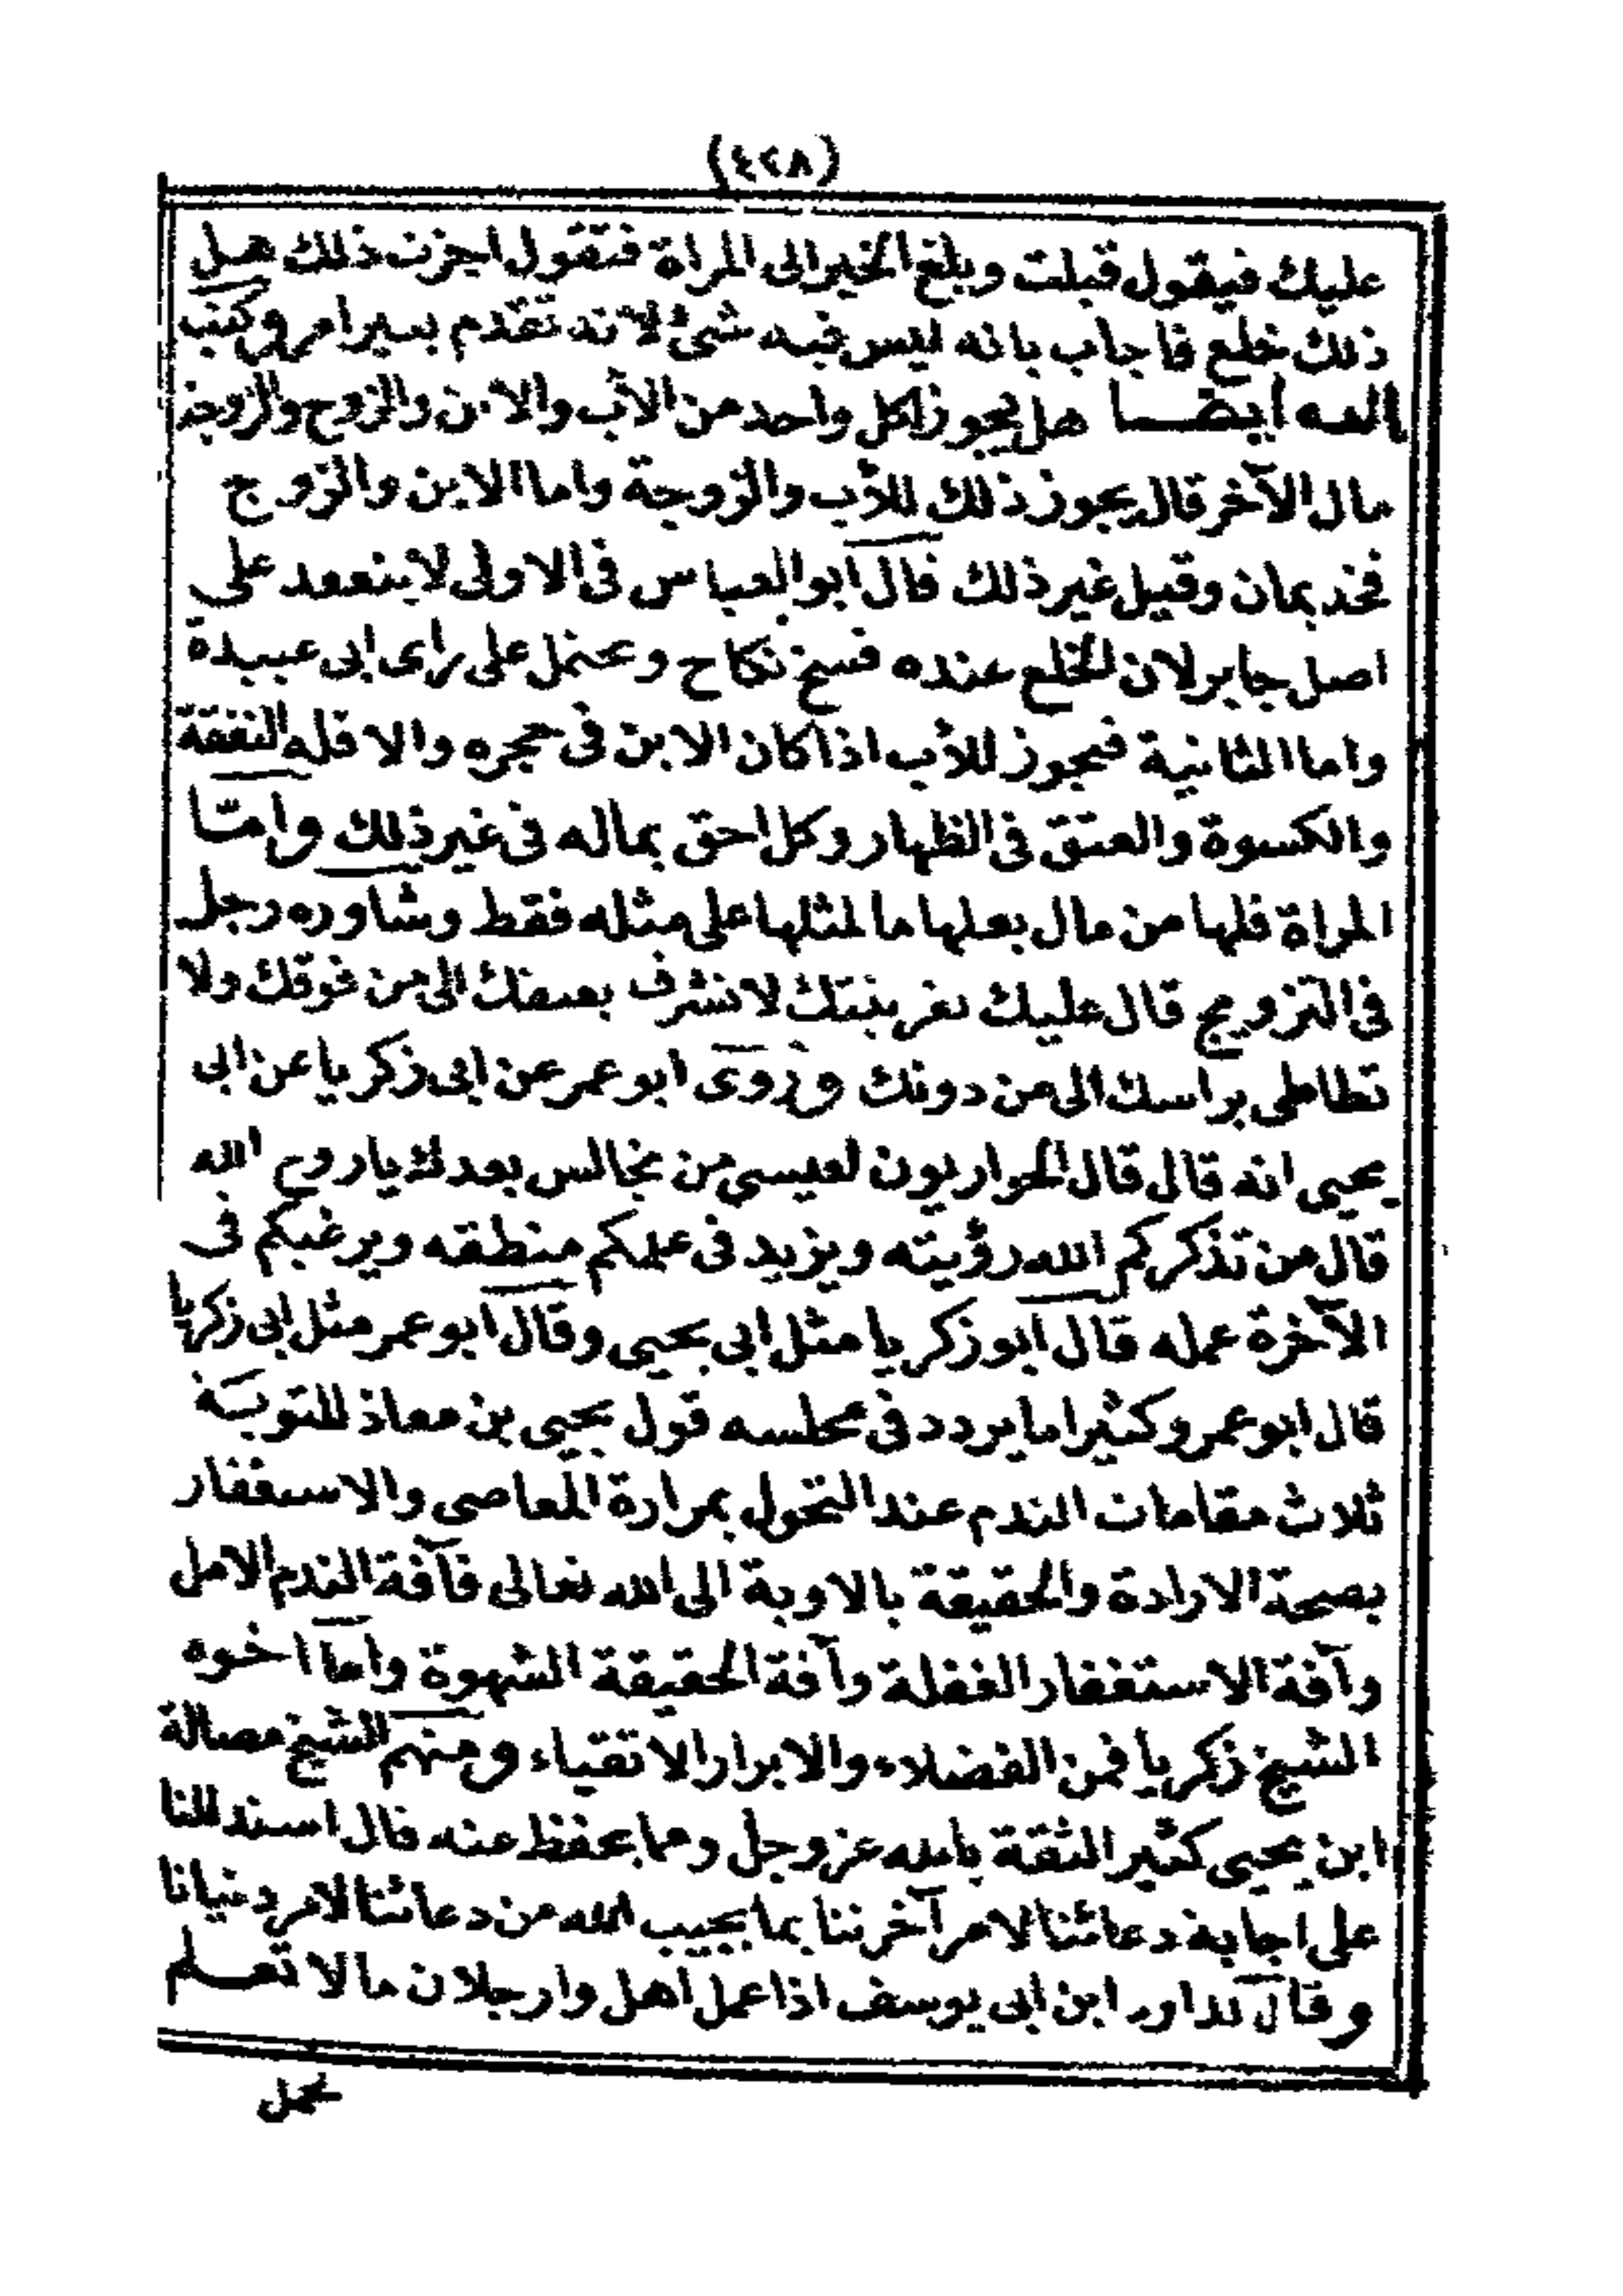 (٤٢٨)
عليك فيقول قبلت وبلغ الخبر الى المراة فتقول اجزت ذلك هل
ذلك خلع فاجاب بانه ليس فيه شئ لانه تقدم بغير امر وكتب
اليه ايضا هل يجوز لكل واحد من الأب والابن والزوج والزوجة
مال الآخر قال يجوز ذلك للأب والزوجة واما الابن والزوج
فخديمان وقيل غير ذلك قال ابو العباس فى الاولى لا ينعقد على
اصل جابر لان الخلع عنده فسخ نكاح ويحتمل على راى ابى عبيدة
واما الثانية فيجوز للأب اذا كان الابن فى حجره والا فله النفقة
والكسوة والعتق فى الظهار وكل احق بماله فى غير ذلك وامّا
المراة فلها من مال بعلها ما لمثلها على مثله فقط وشاوره رجل
فى التزويج قال عليك بقرينتك لا تشرف بعنقك الى من فوقك ولا
تطاطى براسك الى من دونك وروى ابو عمر عن ابى زكريا عن ابى
يحيى انه قال قال الحواريون لعيسى من نجالس بعدك يا روح الله
قال من تذكركم الله رؤيته ويزيد فى عملكم منطقه ويرغبكم فى
الآخرة عمله قال ابو زكريا مثل ابى يحيى وقال ابو عمر مثل ابى زكريا
قال ابو عمر وكثيرا ما يردد فى مجلسه قول يحيى بن معاذ للتوبة
ثلاث مقامات الندم عند التحول بمرارة المعاصى والاستغفار
بصحة الارادة والحقيقة بالاوبة الى الله تعالى فآفة الندم الامل
وآفة الاستغفار الغفلة وآفة الحقيقة الشهوة واما اخوه
الشيخ زكريا فمن الفضلاء والابرار الاتقياء ومنهم الشيخ مصالة
ابن يحيى كثير الثقة بالله عز وجل ومما يحفظ عنه قال استدللنا
على اجابة دعائنا لامر آخرتنا بما يجيب الله من دعائنا لامر دنيانا
وقال لداود ابن ابى يوسف اذا عمل اهل وارجلان ما لا تعلم